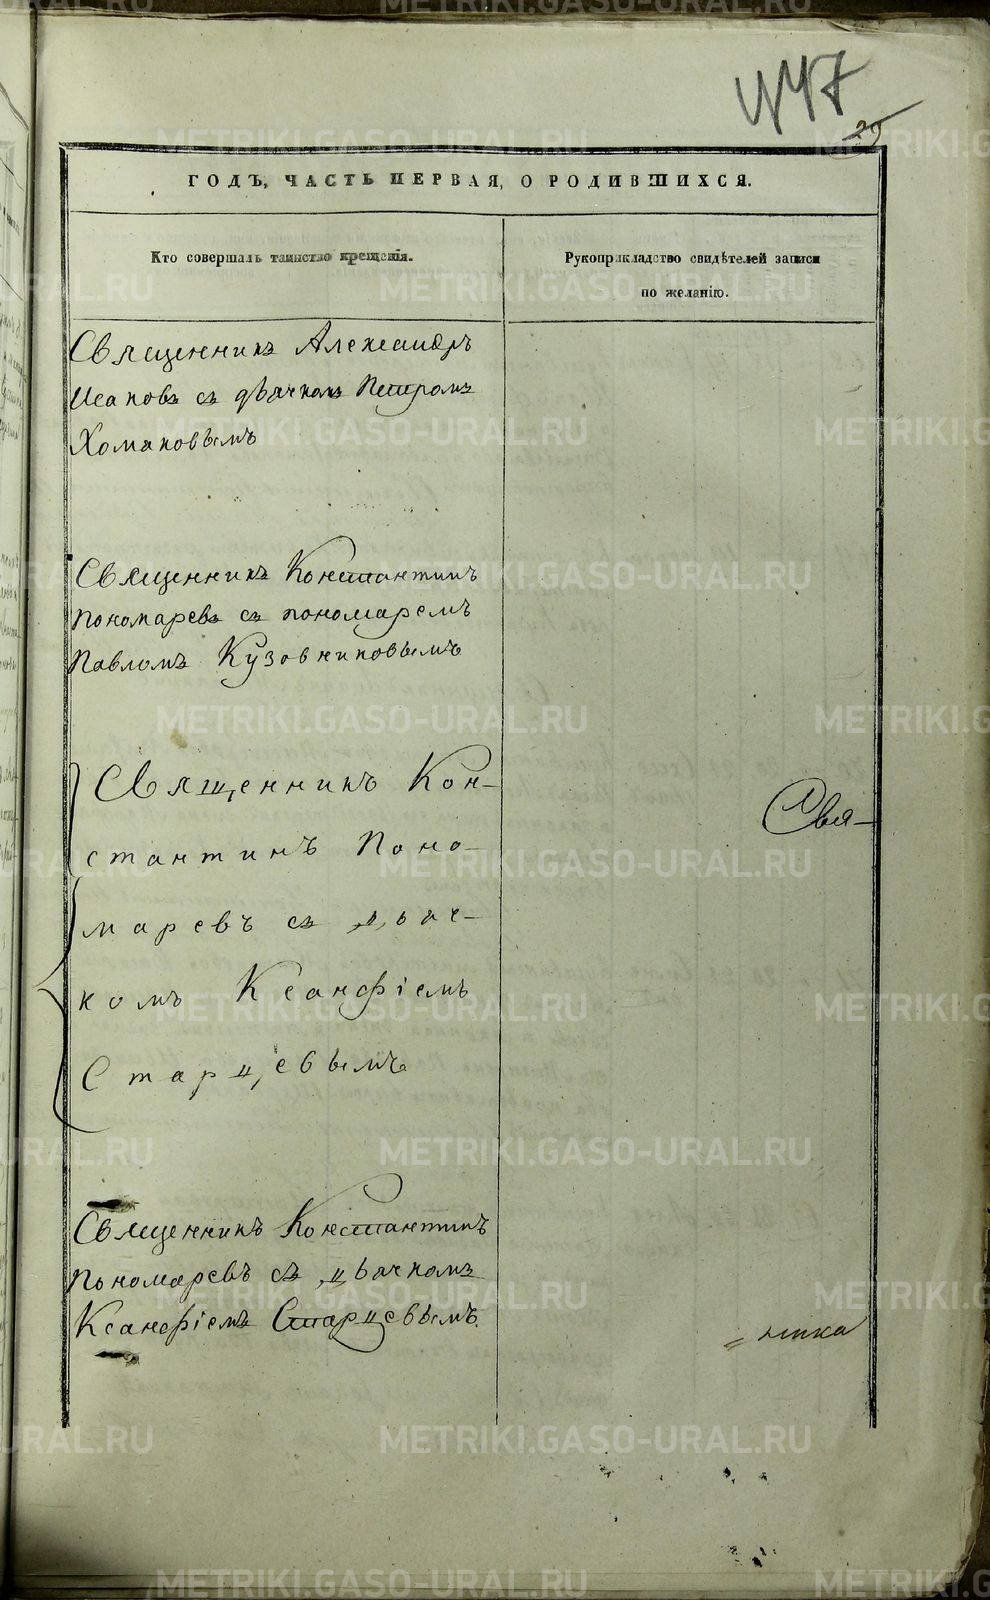 447
29
ГОДЪ, ЧАСТЬ ПЕРВАЯ, О РОДИВШИХСЯ.
Кто совершалъ таинство крещенія.
Рукоприкладство свидѣтелей записи
по желанію.
Священникъ Александръ
Исаковъ съ дьячкомъ Петромъ
Хомяковымъ
Священникъ Константинъ
Пономаревъ съ пономаремъ
Павломъ Кузовниковымъ
Священникъ Кон-
стантинъ Поно-
маревъ съ дьяч-
комъ Ксанфіемъ
Старцевымъ
Свя-
Священникъ Константинъ
Пономаревъ съ дьячкомъ
Ксанфіемъ Старцевымъ.
METRIKI.GASO-URAL.RU